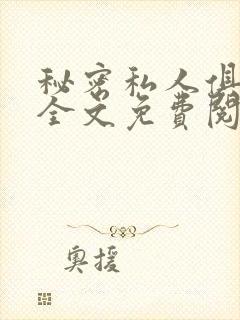 秘密私人俱
全文免费阅
奥援